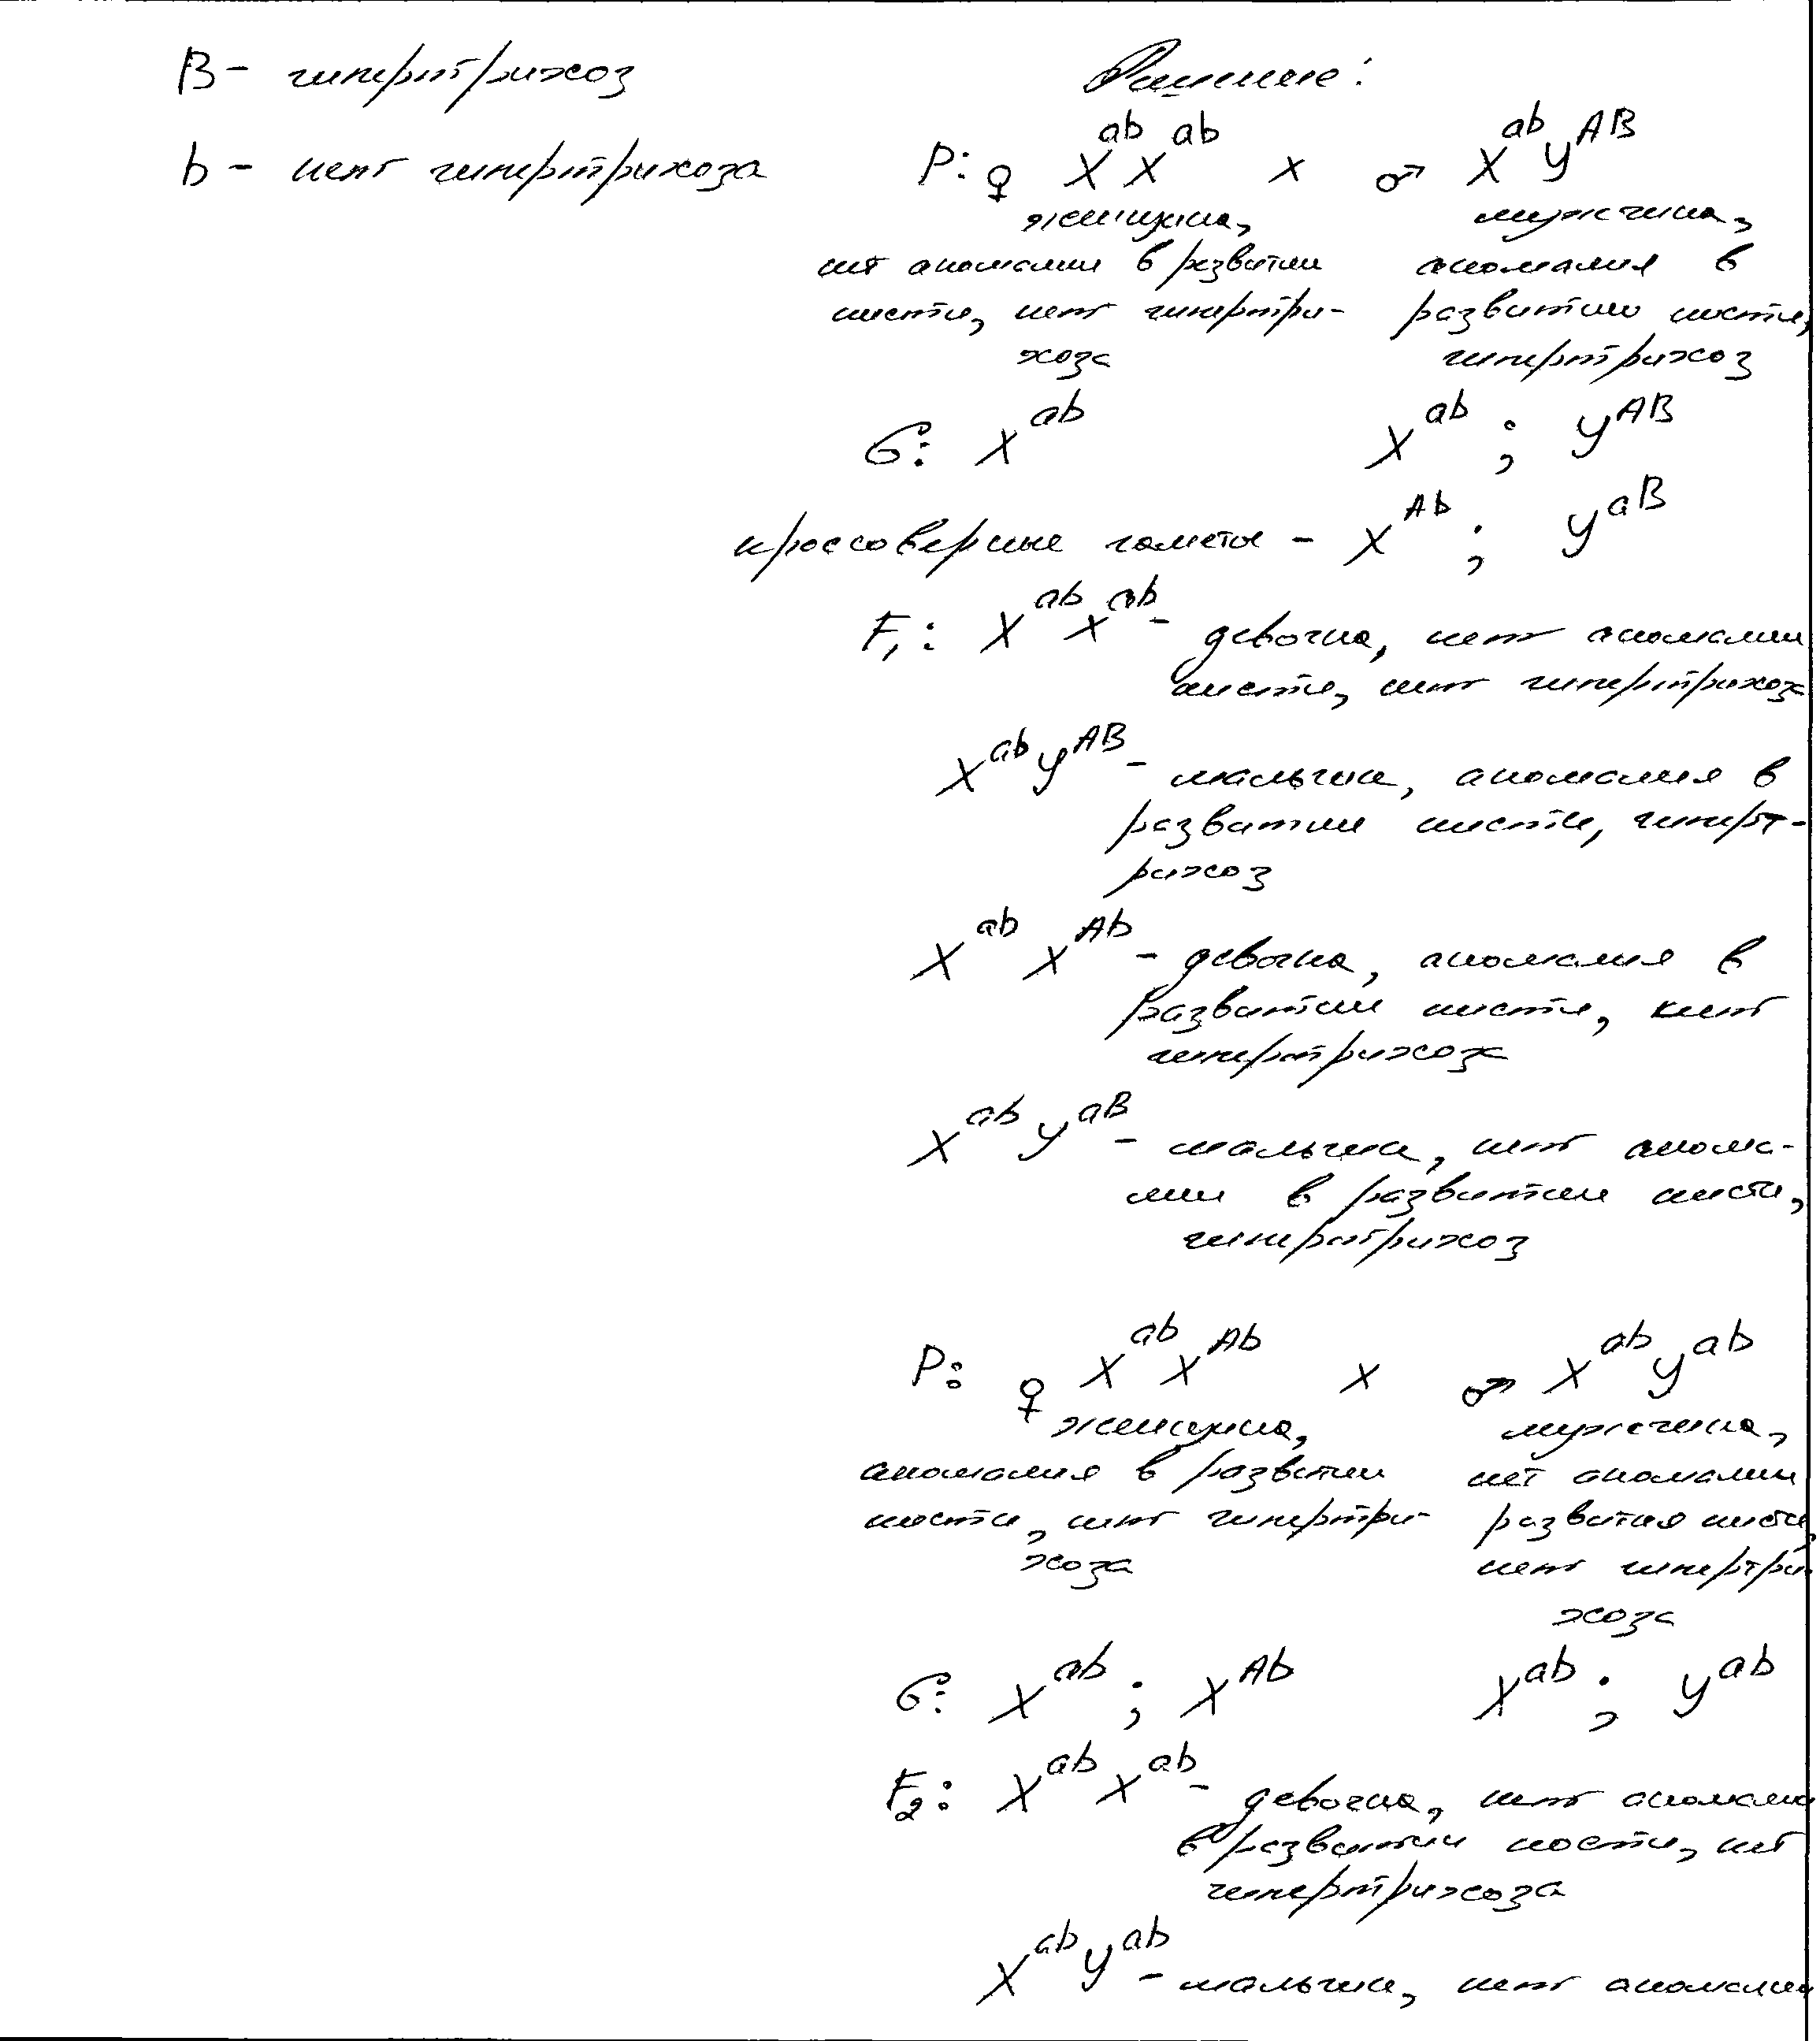 B - гипертрихоз
b - нет гипертрихоза
Решение:
P: ♀ XᵃᵇXᵃᵇ x ♂ XᵃᵇYᴬᴮ
женщина, мужчина,
нет аномалии в развитии аномалия в
кисти, нет гипертри- развитии кисти,
хоза гипертрихоз
G: Xᵃᵇ Xᵃᵇ ; Yᴬᴮ
кроссоверные гаметы - Xᴬᵇ ; Yᵃᴮ
F₁: XᵃᵇXᵃᵇ - девочка, нет аномалии
кисти, нет гипертрихоза
XᵃᵇYᴬᴮ - мальчик, аномалия в
развитии кисти, гиперт-
рихоз
Xᵃᵇ Xᴬᵇ - девочка, аномалия в
развитии кисти, нет
гипертрихоза
XᵃᵇYᵃᴮ - мальчик, нет анома-
лии в развитии кисти,
гипертрихоз
P: ♀ XᵃᵇXᴬᵇ x ♂ XᵃᵇYᵃᵇ
женщина, мужчина,
аномалия в развитии нет аномалии
кисти, нет гипертри- развития кисти,
хоза нет гипертри-
хоза
G: Xᵃᵇ ; Xᴬᵇ Xᵃᵇ ; Yᵃᵇ
F₂: XᵃᵇXᵃᵇ - девочка, нет аномалии
в развитии кости, нет
гипертрихоза
XᵃᵇYᵃᵇ - мальчик, нет аномалии